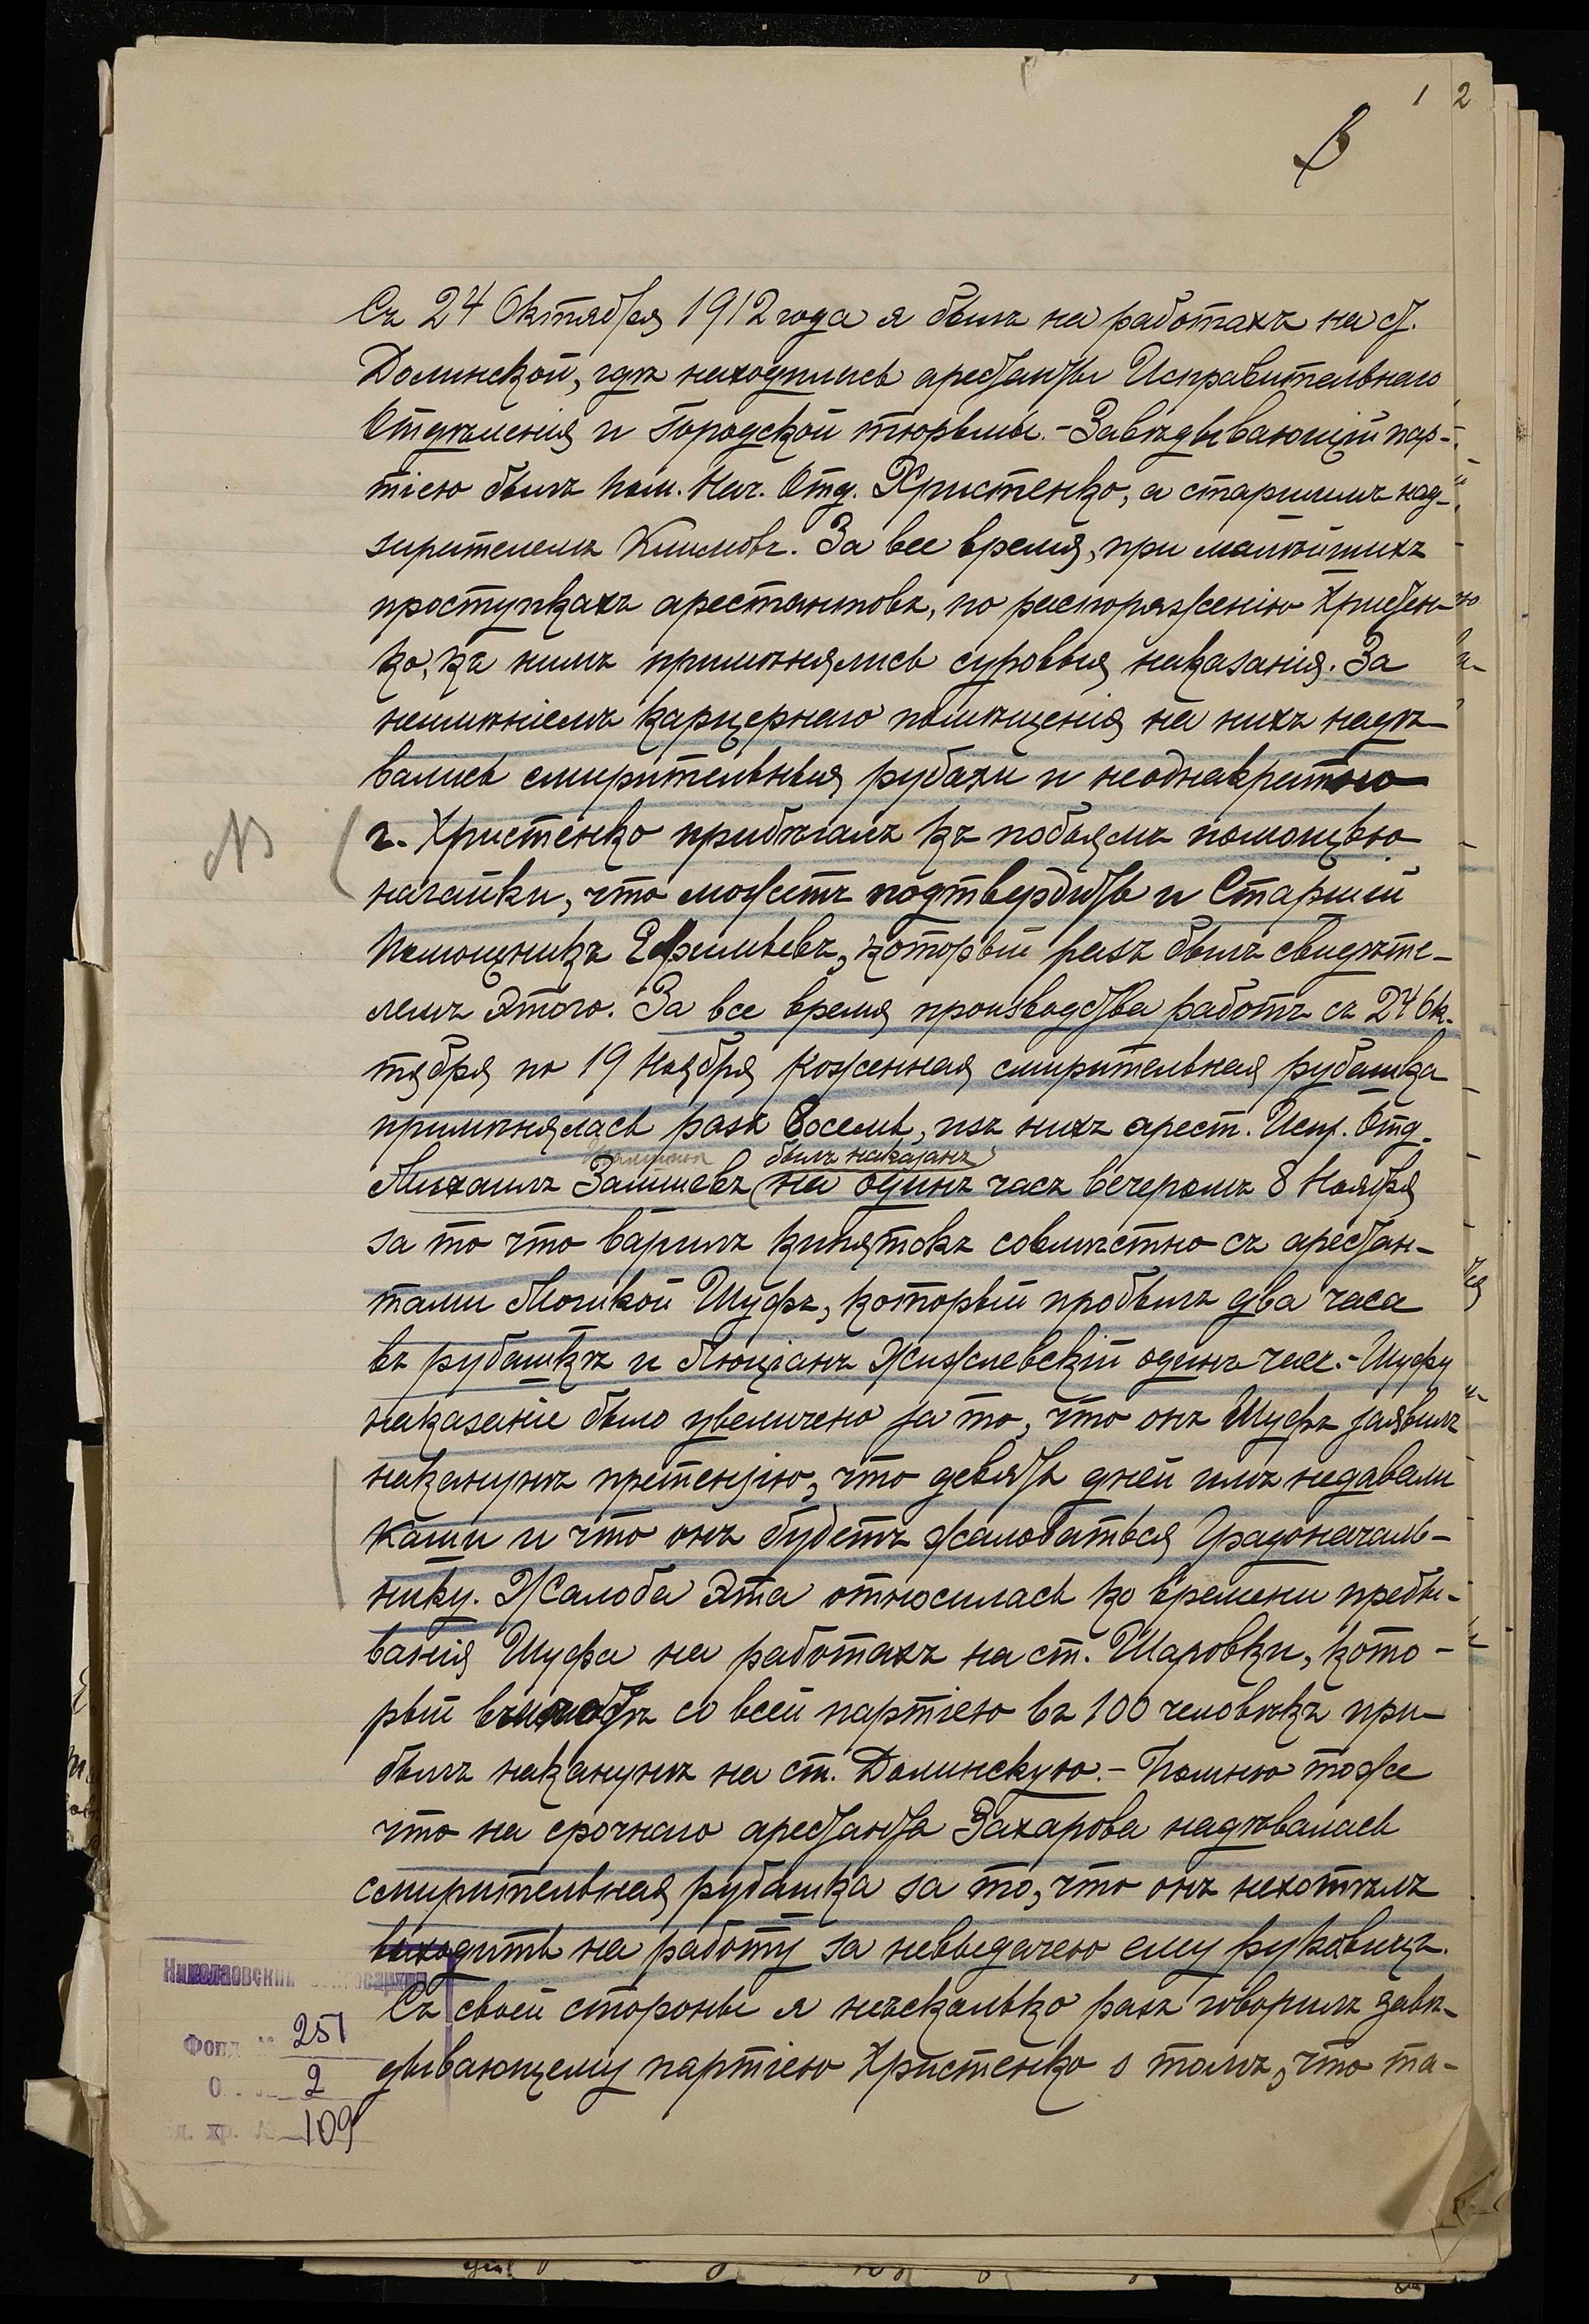 1 2
Съ 24 Октября 1912 года я былъ на работахъ на ст.
Долинской, гдѣ находились арестанты Исправительнаго
Отдѣленія и Городской тюрьмы. - Завѣдывающій пар-
тіею былъ Пом. Нач. Отд. Христенко, а старшимъ над-
зирателемъ Климовъ. За все время, при малѣйшихъ
проступкахъ арестантовъ, по распоряженію Христен-
ко, къ нимъ примѣнялись суровыя наказанія. За
неимѣніемъ карцернаго помѣщенія на нихъ надѣ-
вались смирительныя рубахи и неоднакратно
г. Христенко прибѣгалъ къ побоямъ помощью
нагайки, что можетъ подтвердить и Старшій
Помощникъ Ефимьевъ, который разъ былъ свидѣте-
лемъ этого. За все время производства работъ съ 24 Ок-
тября по 19 Ноября коженная смирительная рубашка
примѣнялась разъ восемь, изъ нихъ арест. Испр. Отд.
былъ наказанъ
Михаилъ Залишевъ на одинъ часъ вечеромъ 8 Ноября
за то что варилъ кипятокъ совмѣстно съ арестан-
тами Мошкой Шуфъ, который пробылъ два часа
въ рубашкѣ и Люціанъ Жижлевскій одинъ часъ. - Шуфу
наказаніе было увеличено за то, что онъ Шуфъ заявилъ
наканунѣ претензію, что девять дней имъ недавали
каши и что онъ будетъ жаловаться Градоначаль-
нику. Жалоба эта относилась ко времени пребы-
ванія Шуфа на работахъ на ст. Шаровки, кото-
рый со всей партіею въ 100 человѣкъ при-
былъ наканунѣ на ст. Долинскую. - Помню тоже
что на срочнаго арестанта Захарова надѣвалась
смирительная рубашка за то, что онъ нехотѣлъ
выходить на работу за невыдачею ему руковицъ.
Съ своей стороны я нѣсколько разъ говорилъ завѣ-
дывающему партіею Христенко о томъ, что та-
NB
Николаевский
Фонд № 251
2
ед. хр. № 109